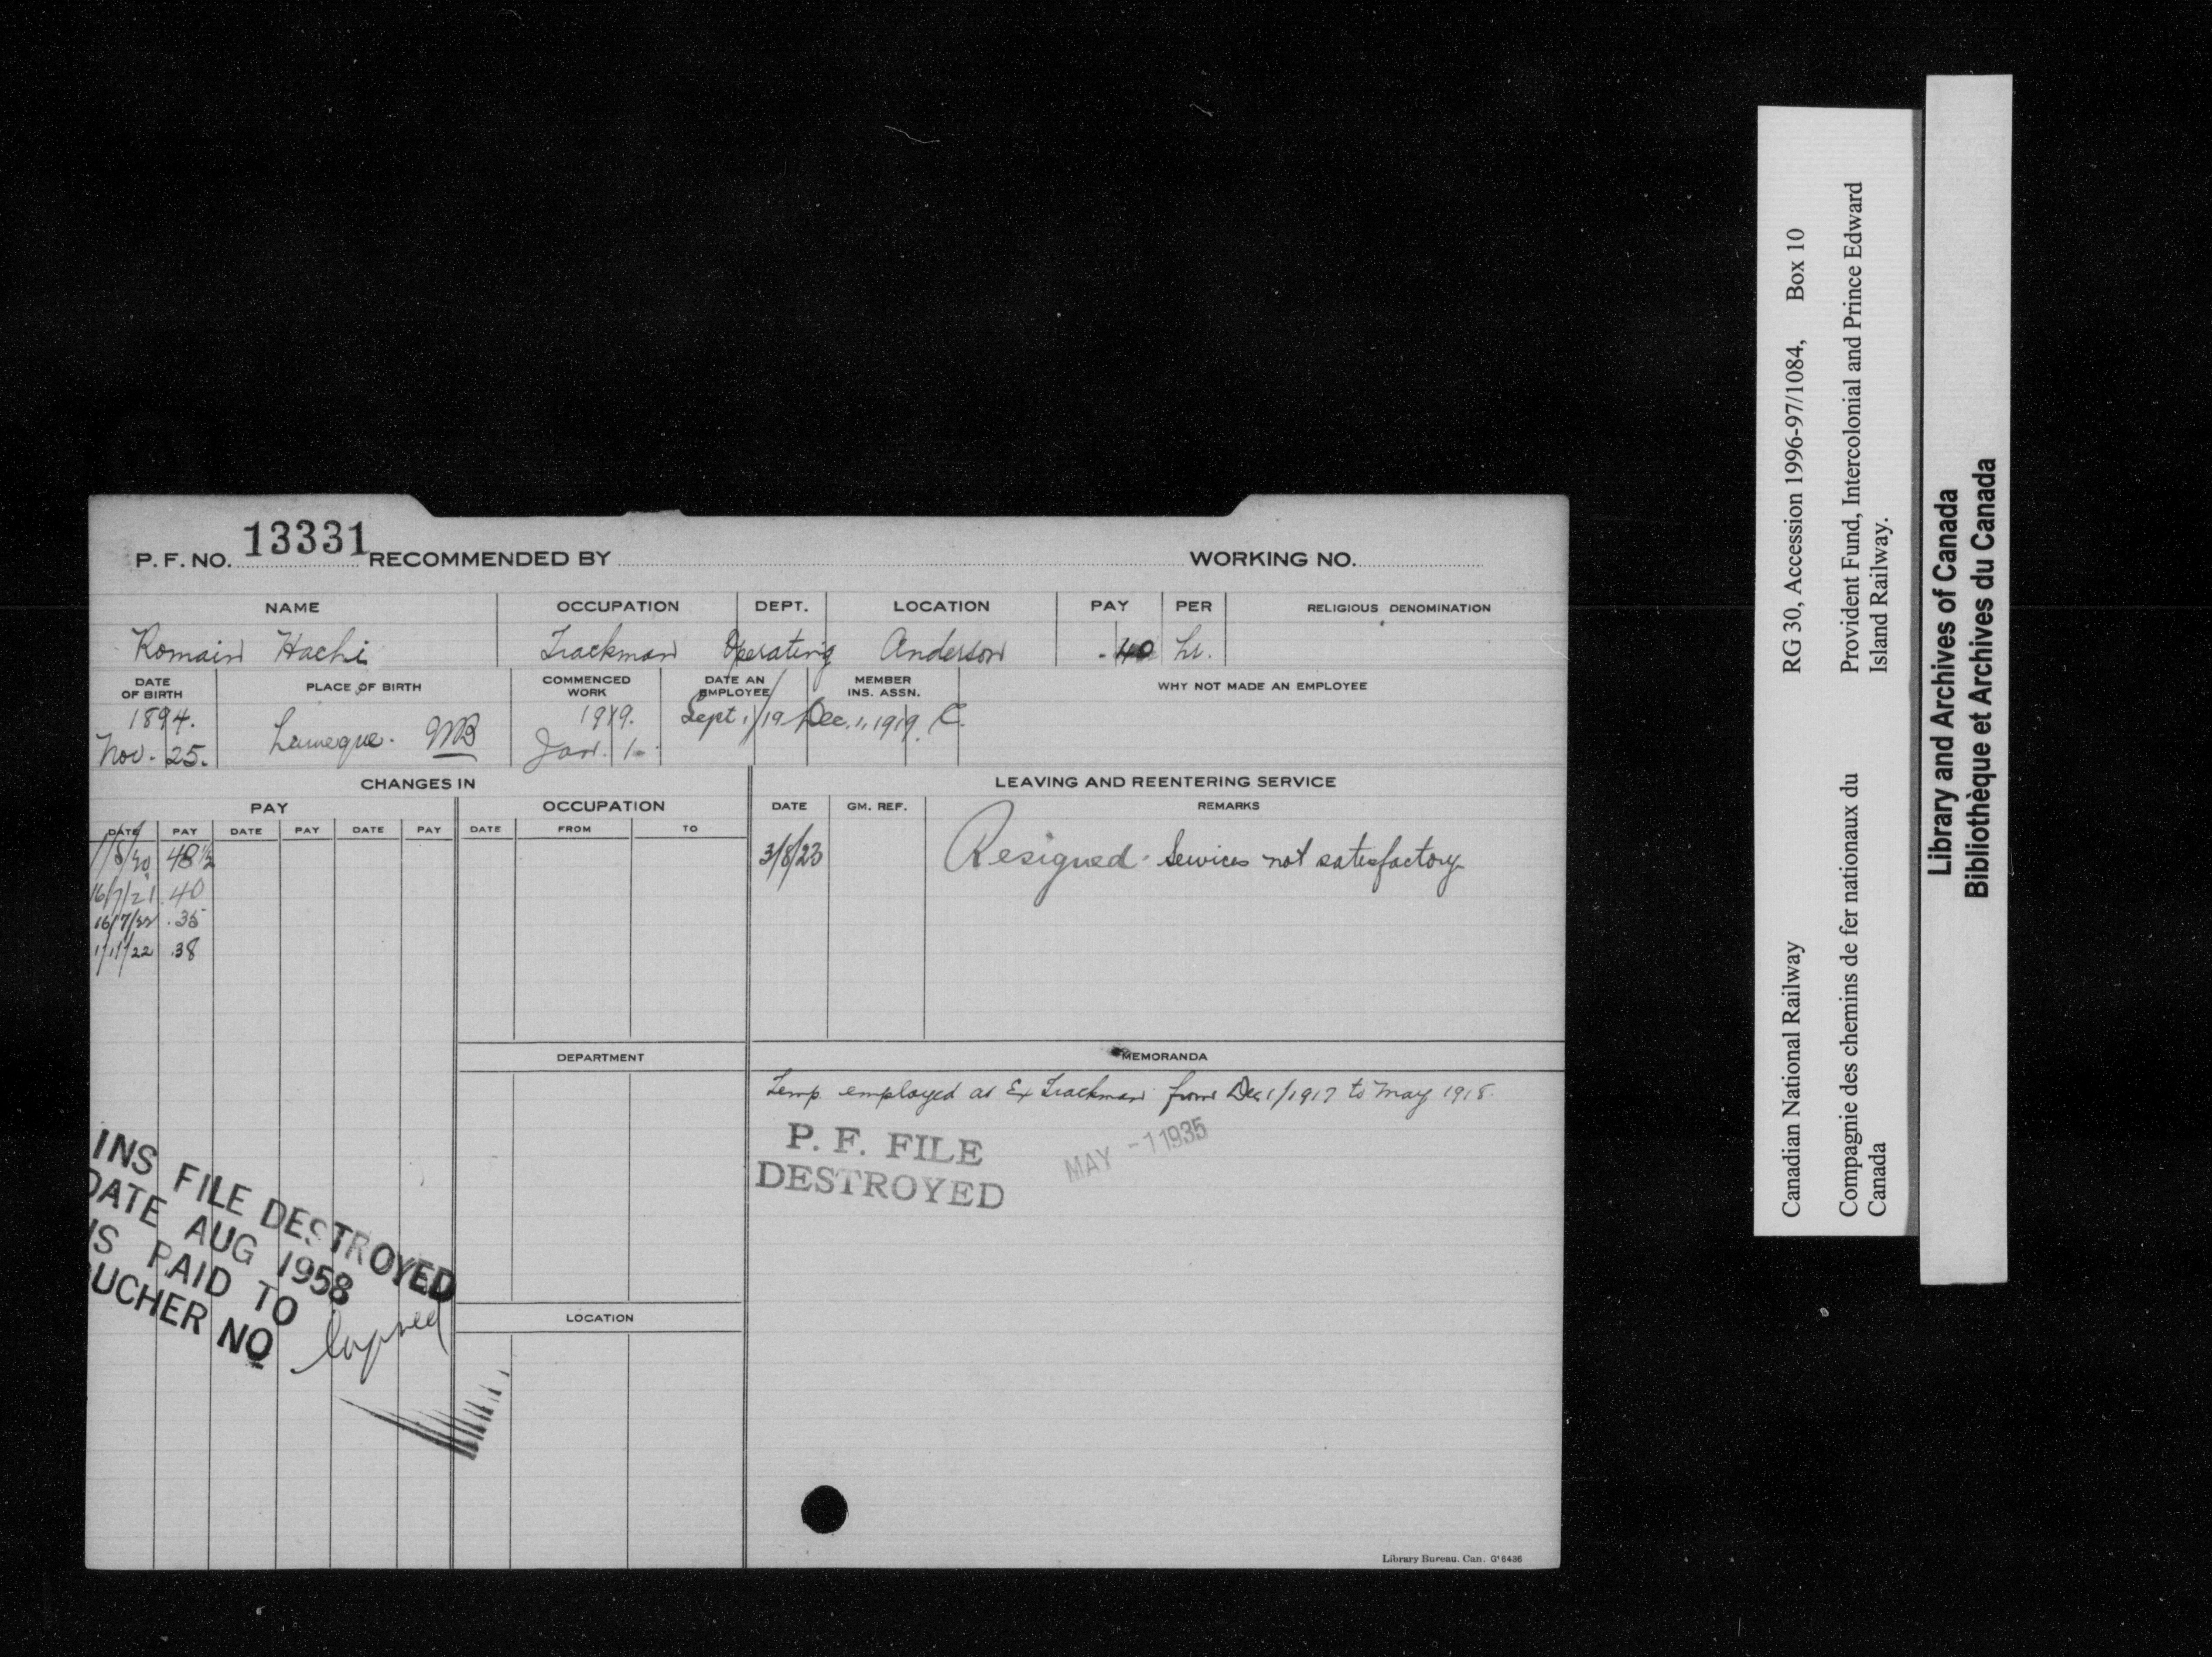 P. F. NO. 13331 RECOMMENDED BY WORKING NO.
NAME OCCUPATION DEPT. LOCATION PAY PER RELIGIOUS DENOMINATION
Romain Hachi Trackman Operating Anderson .40 hr.
DATE OF BIRTH PLACE OF BIRTH COMMENCED WORK DATE AN EMPLOYEE MEMBER INS. ASSN. WHY NOT MADE AN EMPLOYEE
1894. 1919. Sept 1/19 Dec. 1, 1919. C.
Nov. 25. Lameque. NB Jan. 1
CHANGES IN LEAVING AND REENTERING SERVICE
PAY OCCUPATION DATE GM. REF. REMARKS
DATE PAY DATE PAY DATE PAY DATE FROM TO
1/5/20 48½ 3/8/23 Resigned. Services not satisfactory
16/7/21 .40
16/7/22 .35
1/11/22 .38
DEPARTMENT MEMORANDA
Temp. employed as Ex Trackman from Dec 1/1917 to May 1918.
P. F. FILE
DESTROYED
MAY -1 1935
INS FILE DESTROYED
DATE AUG 1958
IS PAID TO
UCHER NO lapsed
LOCATION
Library Bureau. Can. G'6436
Canadian National Railway RG 30, Accession 1996-97/1084, Box 10
Compagnie des chemins de fer nationaux du Canada
Provident Fund, Intercolonial and Prince Edward Island Railway.
Library and Archives of Canada
Bibliothèque et Archives du Canada